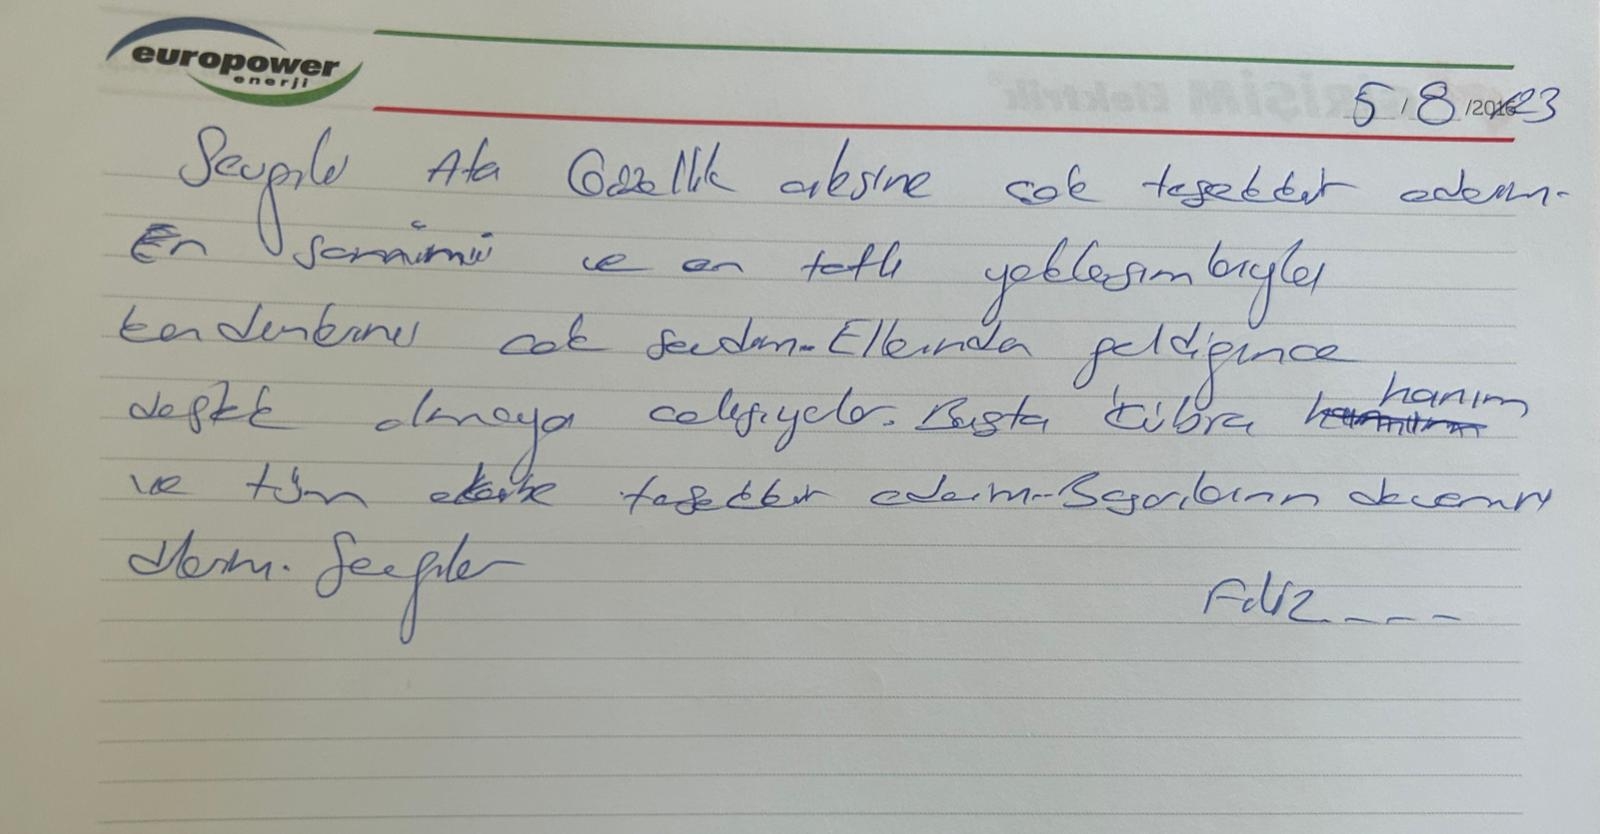 europower
enerji
5/8/2023
Sevgili Ata Güzellik ailesine çok teşekkür ederim.
En samimi ve en tatlı yaklaşımlarıyla
çok sevdim. Ellerinden geldiğince
destek olmaya çalışıyorlar. Başta Kübra hanım
ve tüm ekibe teşekkür ederim. Başarılarının devamını
dilerim. Sevgiler
Filiz